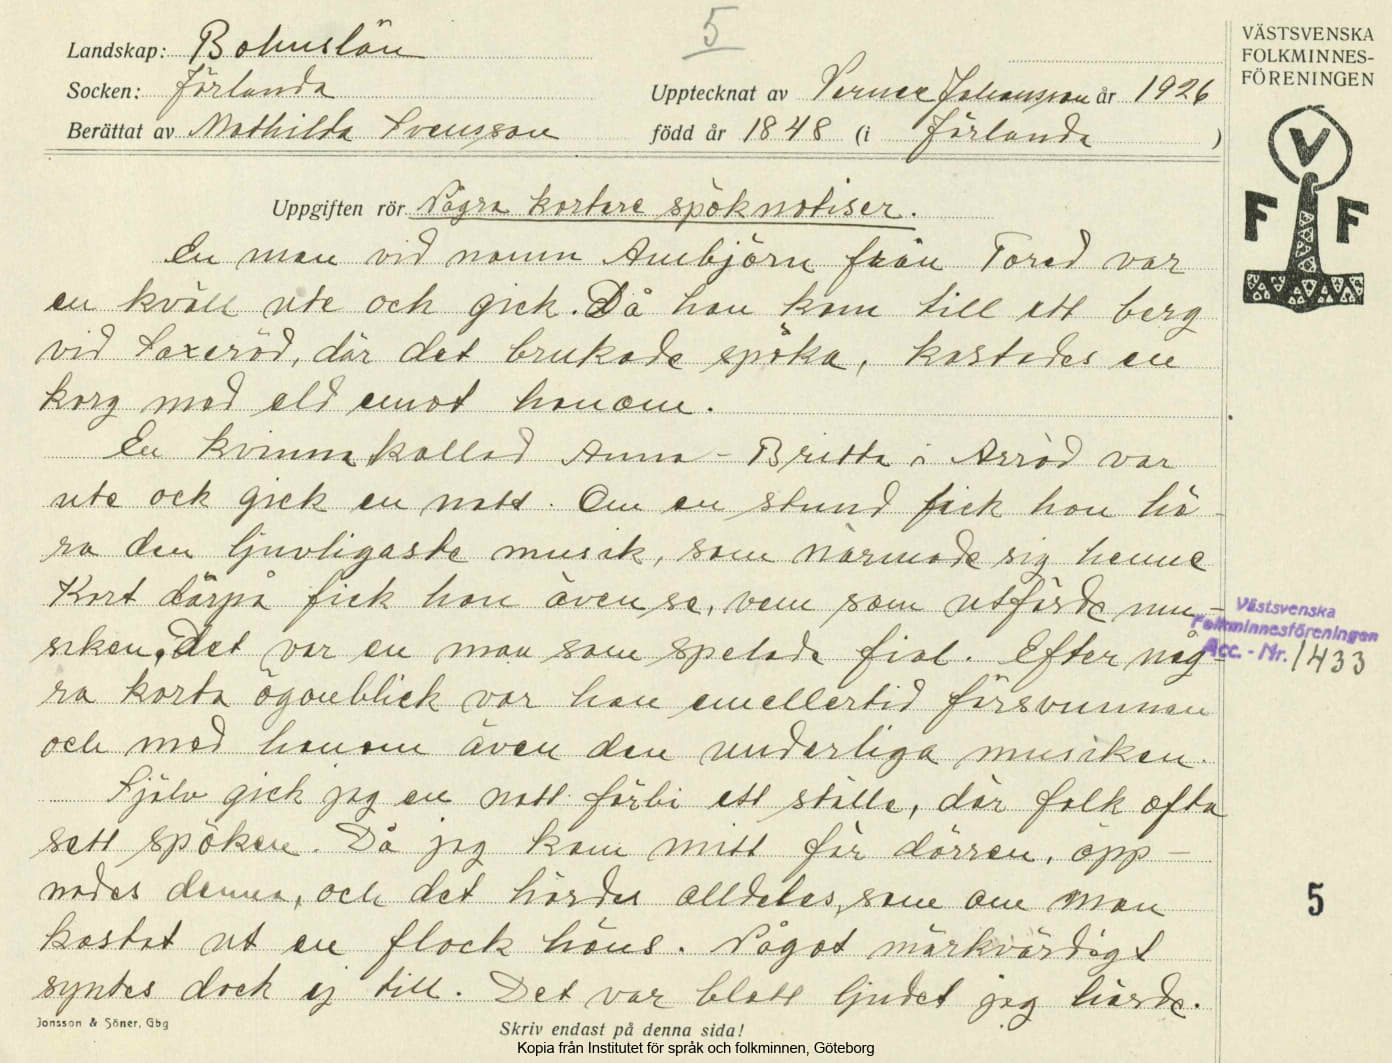 5
Landskap: Bohuslän
Socken: Förlanda
Berättat av Mathilda Svensson
Upptecknat av Verner Johansson år 1926
född år 1848 (i Förlanda )
VÄSTSVENSKA
FOLKMINNES-
FÖRENINGEN
V
F F
Uppgiften rör Några kortare spöknotiser.
En man vid namn Annbjörn från Tored var
en kväll ute och gick. Då han kom till ett berg
vid Saxeröd, där det brukade spöka, kastades en
korg med eld emot honom.
En kvinna kallad Anna-Britta i Arröd var
ute ock gick en natt. Om en stund fick hon hö-
ra den ljuvligaste musik, som närmade sig henne
Kort därpå fick hon även se, vem som utförde mu-
siken. Det var en man som spelade fiol. Efter någ-
ra korta ögonblick var han emellertid försvunnen
och med honom även den underliga musiken.
Själv gick jag en natt förbi ett ställe, där folk ofta
sett spöken. Då jag kom mitt för dörren, öpp-
nades denna, och det hördes alldeles, som om man
kastat ut en flock höns. Något märkvärdigt
syntes dock ej till. Det var blott ljudet jag hörde.
Västsvenska
Folkminnesföreningen
Acc. - Nr. 1433
5
Jonsson & Söner, Gbg
Skriv endast på denna sida!
Kopia från Institutet för språk och folkminnen, Göteborg